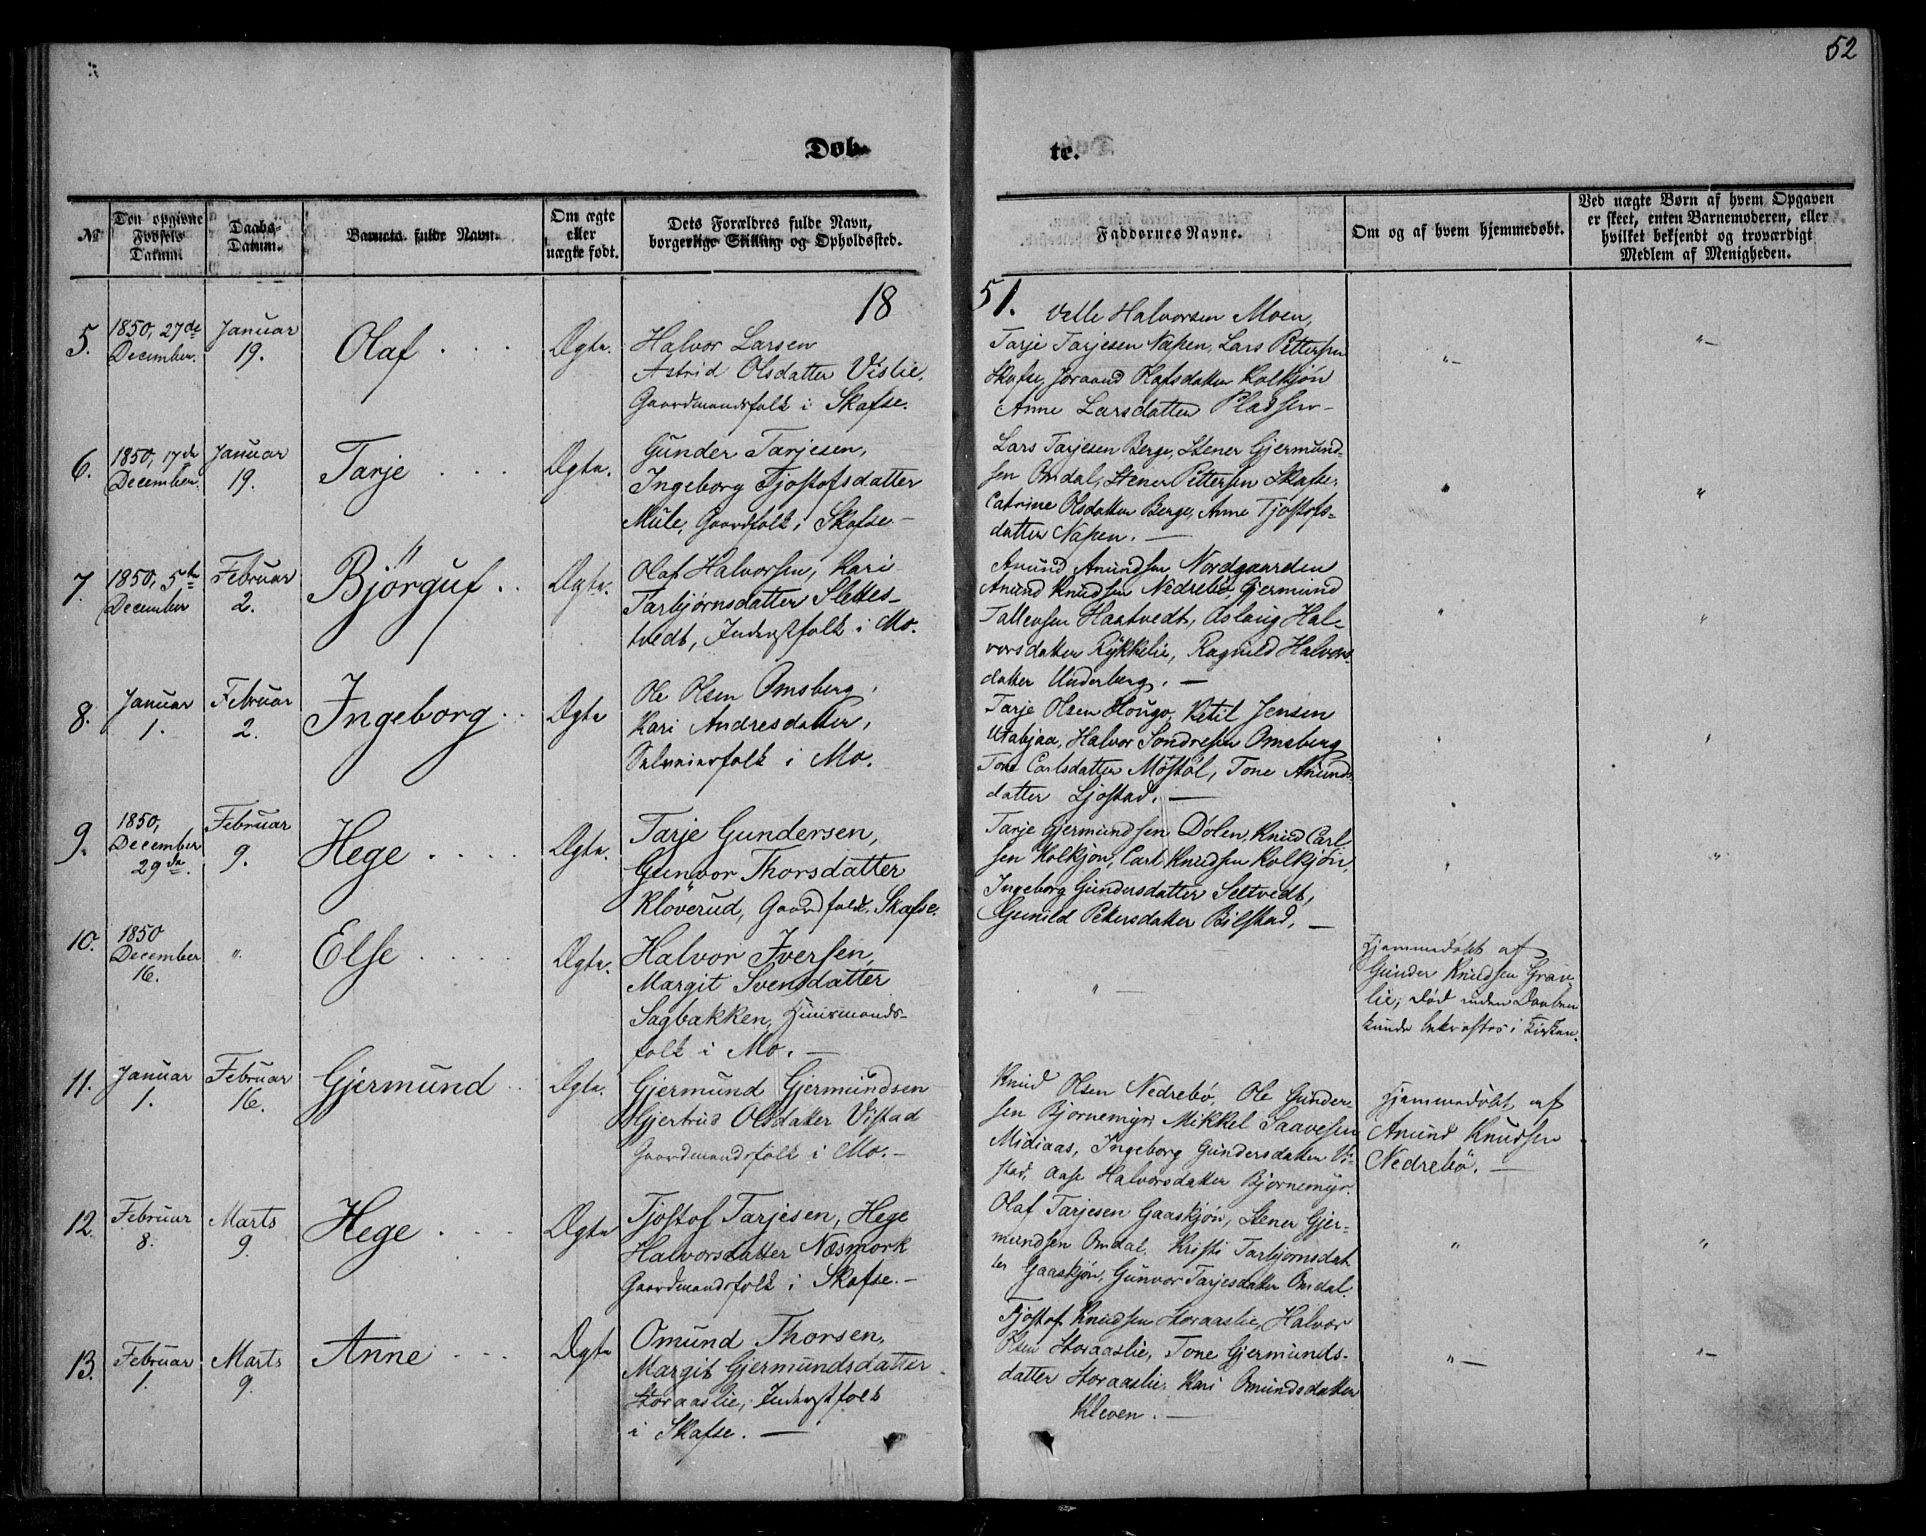 52
Døb-
te.
№
Den opgivne
Fødsels
Datum.
Daabs-
Datum.
Barnets fulde Navn.
Om ægte
eller
uægte født.
Dets Forældres fulde Navn,
borgerlige Stilling og Opholdssted.
Faddernes Navne.
Om og af hvem hjemmedøbt.
Ved uægte Børn af hvem Opgaven
er skeet, enten Barnemoderen, eller
hvilket bekjendt og troværdigt
Medlem af Menigheden.
18
51.
5.
1850, 27de
December.
Januar
19.
Olaf
Ægte.
Halvor Larsen
Astrid Olsdatter Vislie,
Gaardmandsfolk i Skafse.
Velle Halvorsen Moen,
Tarje Tarjesen Napen, Lars Pettersen
Skafse, Joraand Olafsdatter Kolkjøn
Anne Larsdatter Pladsen-
"-
"-
6.
1850, 17de
December.
Januar
19.
Tarje
Ægte.
Gunder Tarjesen,
Ingeborg Tjostofsdatter
Mule, Gaardfolk i Skafse.-
Lars Tarjesen Berge, Stener Gjermund-
sen Omdal, Stener Pettersen Skafse,
Catrine Olsdatter Berge, Anne Tjostofs-
datter Napen. -
"
"
7.
1850, 5te
December
Februar
2.
Bjørguf
Ægte.
Olaf Halvorsen, Kari
Tarbjørnsdatter Slettes-
tvedt, Inderstfolk i Mo.
Anund Anundsen Nordgaarden
Anund Knudsen Nedrebø, Gjermund
Tallevsen Haatvedt, Aslaug Hal-
vorsdatter Rykkelie, Ragnild Halvors-
datter Underberg. -
"
"
8.
Januar
1.
Februar
2.
Ingeborg
Ægte
Ole Olsen Omsberg,
Kari Andresdatter,
Selveierfolk i Mo.
Tarje Olsen Hougo, Ketil Jensen
Utabjaa, Halvor Sondresen Omsberg
Tone Carlsdatter Møstøl, Tone Anunds-
datter Ljostad. -
"
"
9.
1850,
December
29de.
Februar
9.
Hege
Ægte.
Tarje Gundersen,
Gunvor Thorsdatter
Kløverud, Gaardfolk, Skafse.
Tarje Gjermundsen Dølen, Knud Carl-
sen Kolkjøn, Carl Knudsen Kolkjøn,
Ingeborg Gundersdatter Seltvedt,
Gunild Petersdatter Bilstad. -
"
"
10.
1850
December
16.
"
Else
Ægte.
Halvor Iversen,
Margit Svensdatter
Sagbakken, Huusmands-
folk i Mo. -
" -
Hjemmedøbt af
Gunder Knudsen Grav-
lie; død uden Daaben
kunde bekræftes i Kirken.
11.
Januar
1.
Februar
16.
Gjermund
Ægte.
Gjermund Gjermundsen
Gjertrud Olsdatter Vistad
Gaardmandsfolk i Mo.-
Knud Olsen Nedrebø, Ole Gunder-
sen Bjørnemyr, Mikkel Saavesen
Midiaas, Ingeborg Gundersdatter Vi-
stad, Aase Halvorsdatter Bjørnemyr.
Hjemmedøbt af
Anund Knudsen
Nedrebø. -
12.
Februar
8.
Marts
9.
Hege
Ægte
Tjostof Tarjesen, Hege
Halvorsdatter Næsmork
Gaardmandsfolk i Skafse.-
Olaf Tarjesen Gaaskjøn, Stener Gjer-
mundsen Omdal, Kristi Tarbjørnsdat
ter Gaaskjøn, Gunvor Tarjesdatter Omdal.
"
"
13.
Februar
1.
Marts
9.
Anne
Ægte
Omund Thorsen,
Margit Gjermundsdatter
Storaaslie, Inderstfolk
i Skafse. -
Tjostof Knudsen Storaaslie, Halvor
Olsen Storaaslie, Tone Gjermunds-
datter Storaaslie, Kari Omundsdatter
Kleven. -
"-
"-